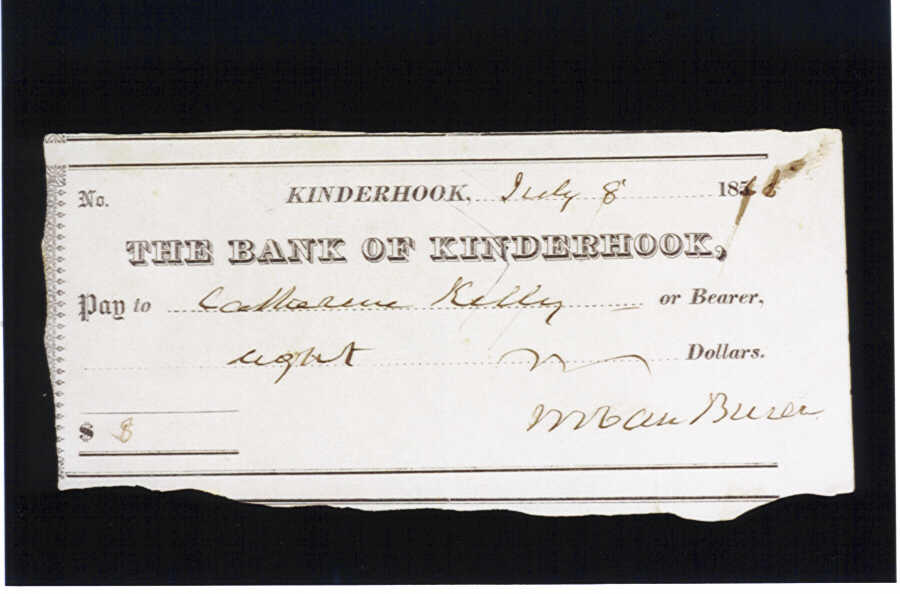 No. KINDERHOOK, July 8 185
THE BANK OF KINDERHOOK,
Pay to Catherine Kelly or Bearer,
eight Dollars.
$ 8
MVan Buren